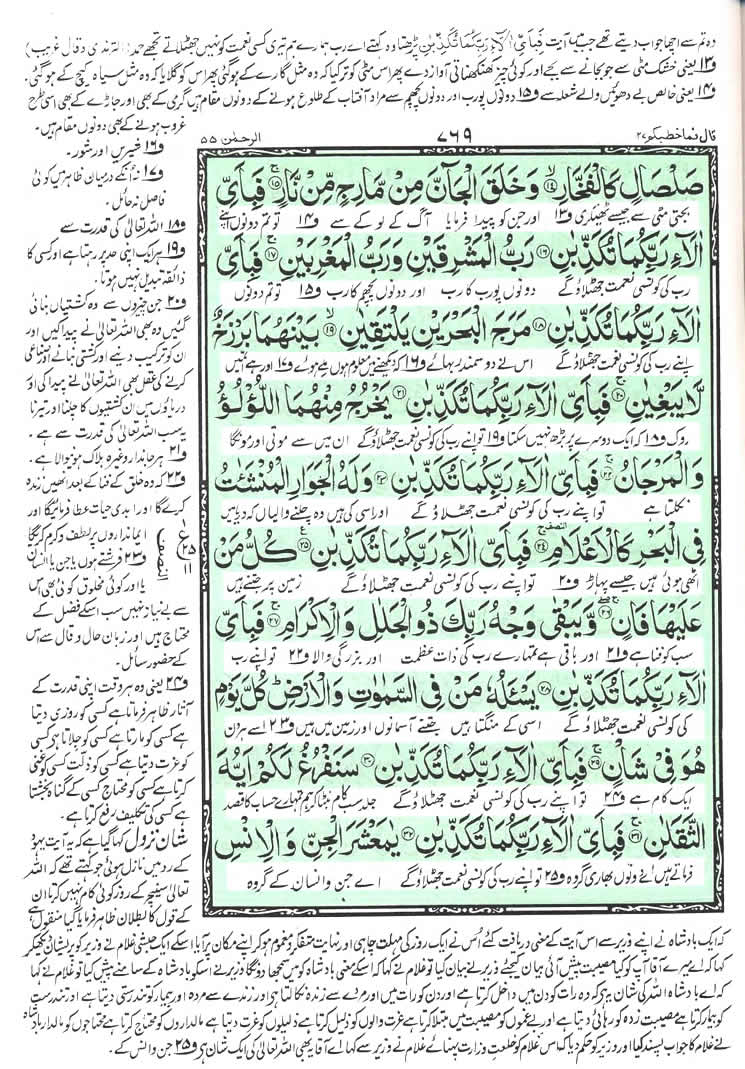 وہ تم سے اچھا جواب دیتے تھے جب میں آیت فَبِاَیِّ اٰلَآءِ رَبِّكُمَا تُكَذِّبٰنِ پڑھتا وہ کہتے اے رب ہمارے ہم تیری کسی نعمت کو نہیں جھٹلاتے تجھے حمد (الترمذی وقال غریب)
ف۱۳ یعنی خشک مٹی سے جو بجانے سے بجے اور کوئی چیز کھنکھناتی آواز دے پھر اس مٹی کو تر کیا کہ وہ مثل گارے کے ہوگئی پھر اس کو گلایا کہ وہ مثل سیاہ کیچ کے ہوگئی۔
ف۱۴ یعنی خالص بے دھوئیں والے شعلہ سے ف۱۵ دونوں پورب اور دونوں پچھم سے مراد آفتاب کے طلوع ہونے کے دونوں مقام ہیں گرمی کے بھی اور جاڑے کے بھی اسی طرح
غروب ہونے کے بھی دونوں مقام ہیں۔
قال فما خطبکم ۲۷ ۷۶۹ الرحمٰن ۵۵
صَلْصَالٍ كَالْفَخَّارِ ۙ۱۴ وَخَلَقَ الْجَآنَّ مِنْ مَّارِجٍ مِّنْ نَّارٍ ۚ۱۵ فَبِاَیِّ
بجتی مٹی سے جیسے ٹھیکری ف۱۳ اور جن کو پیدا فرمایا آگ کے لوکے سے ف۱۴ تو تم دونوں اپنے
اٰلَآءِ رَبِّكُمَا تُكَذِّبٰنِ ۱۶ رَبُّ الْمَشْرِقَیْنِ وَرَبُّ الْمَغْرِبَیْنِ ۚ۱۷ فَبِاَیِّ
رب کی کونسی نعمت جھٹلاؤ گے دونوں پورب کا رب اور دونوں پچھم کا رب ف۱۵ تو تم دونوں
اٰلَآءِ رَبِّكُمَا تُكَذِّبٰنِ ۱۸ مَرَجَ الْبَحْرَیْنِ یَلْتَقِیٰنِ ۙ۱۹ بَیْنَهُمَا بَرْزَخٌ
اپنے رب کی کونسی نعمت جھٹلاؤ گے اس نے دو سمندر بہائے ف۱۶ کہ دیکھنے میں معلوم ہوں ملے ہوئے ف۱۷ اور ہے ان میں
لَّا یَبْغِیٰنِ ۚ۲۰ فَبِاَیِّ اٰلَآءِ رَبِّكُمَا تُكَذِّبٰنِ ۲۱ یَخْرُجُ مِنْهُمَا اللُّؤْلُؤُ
روک ف۱۸ کہ ایک دوسرے پر بڑھ نہیں سکتا ف۱۹ تو اپنے رب کی کونسی نعمت جھٹلاؤ گے ان میں سے موتی اور مونگا
وَالْمَرْجَانُ ۚ۲۲ فَبِاَیِّ اٰلَآءِ رَبِّكُمَا تُكَذِّبٰنِ ۲۳ وَلَهُ الْجَوَارِ الْمُنْشَئٰتُ
نکلتا ہے تو اپنے رب کی کونسی نعمت جھٹلاؤ گے اور اسی کی ہیں وہ چلنے والیاں کہ دریا میں
فِی الْبَحْرِ كَالْاَعْلَامِ ۚ۲۴ فَبِاَیِّ اٰلَآءِ رَبِّكُمَا تُكَذِّبٰنِ ۲۵ كُلُّ مَنْ
اٹھی ہوئی ہیں جیسے پہاڑ ف۲۰ تو اپنے رب کی کونسی نعمت جھٹلاؤ گے زمین پر جتنے ہیں
عَلَیْهَا فَانٍ ۚ۲۶ وَّیَبْقٰی وَجْهُ رَبِّكَ ذُو الْجَلٰلِ وَالْاِكْرَامِ ۚ۲۷ فَبِاَیِّ
سب کو فنا ہے ف۲۱ اور باقی ہے تمہارے رب کی ذات عظمت اور بزرگی والا ف۲۲ تو اپنے رب
اٰلَآءِ رَبِّكُمَا تُكَذِّبٰنِ ۲۸ یَسْئَلُهٗ مَنْ فِی السَّمٰوٰتِ وَالْاَرْضِ كُلَّ یَوْمٍ
کی کونسی نعمت جھٹلاؤ گے اسی کے منگتا ہیں جتنے آسمانوں اور زمین میں ہیں ف۲۳ اسے ہر دن
هُوَ فِیْ شَاْنٍ ۚ۲۹ فَبِاَیِّ اٰلَآءِ رَبِّكُمَا تُكَذِّبٰنِ ۳۰ سَنَفْرُغُ لَكُمْ اَیُّهَ
ایک کام ہے ف۲۴ تو اپنے رب کی کونسی نعمت جھٹلاؤ گے جلد سب کام نبٹا کر ہم تمہارے حساب کا قصد
الثَّقَلٰنِ ۚ۳۱ فَبِاَیِّ اٰلَآءِ رَبِّكُمَا تُكَذِّبٰنِ ۳۲ یٰمَعْشَرَ الْجِنِّ وَالْاِنْسِ
فرماتے ہیں اے دونوں بھاری گروہ ف۲۵ تو اپنے رب کی کونسی نعمت جھٹلاؤ گے اے جن و انسان کے گروہ
ف۱۶ شیریں اور شور۔
ف۱۷ نہ انکے درمیان ظاہر میں کوئی
فاصل نہ حائل۔
ف۱۸ اللہ تعالیٰ کی قدرت سے
ف۱۹ ہر ایک اپنی حد پر رہتا ہے اور کسی کا
ذائقہ تبدیل نہیں ہوتا۔
ف۲۰ جن چیزوں سے وہ کشتیاں بنائی
گئیں وہ بھی اللہ تعالیٰ نے پیدا کیں اور
ان کو ترکیب دینے اور کشتی بنانے اور صناعی
کرنے کی عقل بھی اللہ تعالیٰ نے پیدا کی اور
دریاؤں میں ان کشتیوں کا چلنا اور تیرنا
یہ سب اللہ تعالیٰ کی قدرت سے ہے۔
ف۲۱ ہر جاندار وغیرہ ہلاک ہونے والا ہے۔
ف۲۲ کہ وہ خلق کے فنا کے بعد انھیں زندہ
کرے گا اور ابدی حیات عطا فرمائیگا اور
ایمانداروں پر لطف و کرم کریگا
ف۲۳ فرشتے ہوں یا جن یا انسان
یا اور کوئی مخلوق کوئی بھی اس
سے بے نیاز نہیں سب اسکے فضل کے
محتاج ہیں اور زبان حال و قال سے اس
کے حضور سائل۔
ف۲۴ یعنی وہ ہر وقت اپنی قدرت کے
آثار ظاہر فرماتا ہے کسی کو روزی دیتا
ہے کسی کو مارتا ہے کسی کو جلاتا ہے کسی
کو عزت دیتا ہے کسی کو ذلت کسی کو غنی
کرتا ہے کسی کو محتاج کسی کے گناہ بخشتا
ہے کسی کی تکلیف رفع کرتا ہے۔
شان نزول کہا گیا ہے کہ یہ آیت یہود
کے رد میں نازل ہوئی جو کہتے تھے کہ اللہ
تعالیٰ سنیچر کے روز کوئی کام نہیں کرتا ان
کے قول کا بطلان ظاہر فرمایا گیا منقول ہے
ع ۲۵ ۱۱
النصف
کہ ایک بادشاہ نے اپنے وزیر سے اس آیت کے معنی دریافت کئے اس نے ایک روز کی مہلت چاہی اور نہایت متفکر و مغموم ہو کر اپنے مکان پر آیا اسکے ایک حبشی غلام نے وزیر کو پریشان دیکھ کر
کہا کہ اے میرے آقا آپ کو کیا مصیبت پیش آئی بیان کیجئے وزیر نے بیان کیا تو غلام نے کہا کہ اسکے معنی بادشاہ کو میں سمجھا دونگا وزیر نے اسکو بادشاہ کے سامنے پیش کیا تو غلام نے کہا
کہ اے بادشاہ اللہ کی شان یہ ہے کہ وہ رات کو دن میں داخل کرتا ہے اور دن کو رات میں اور مردے سے زندہ نکالتا ہے اور زندے سے مردہ اور بیمار کو تندرستی دیتا ہے اور تندرست
کو بیمار کرتا ہے مصیبت زدہ کو رہائی دیتا ہے اور بے غموں کو مصیبت میں مبتلا کرتا ہے عزت والوں کو ذلیل کرتا ہے ذلیلوں کو عزت دیتا ہے مالداروں کو محتاج کرتا ہے محتاجوں کو مالدار بادشاہ
نے غلام کا جواب پسند کیا اور وزیر کو حکم دیا کہ اس غلام کو خلعت وزارت پہنائے غلام نے وزیر سے کہا اے آقا یہ بھی اللہ تعالیٰ کی ایک شان ہے ف۲۵ جن و انس کے۔